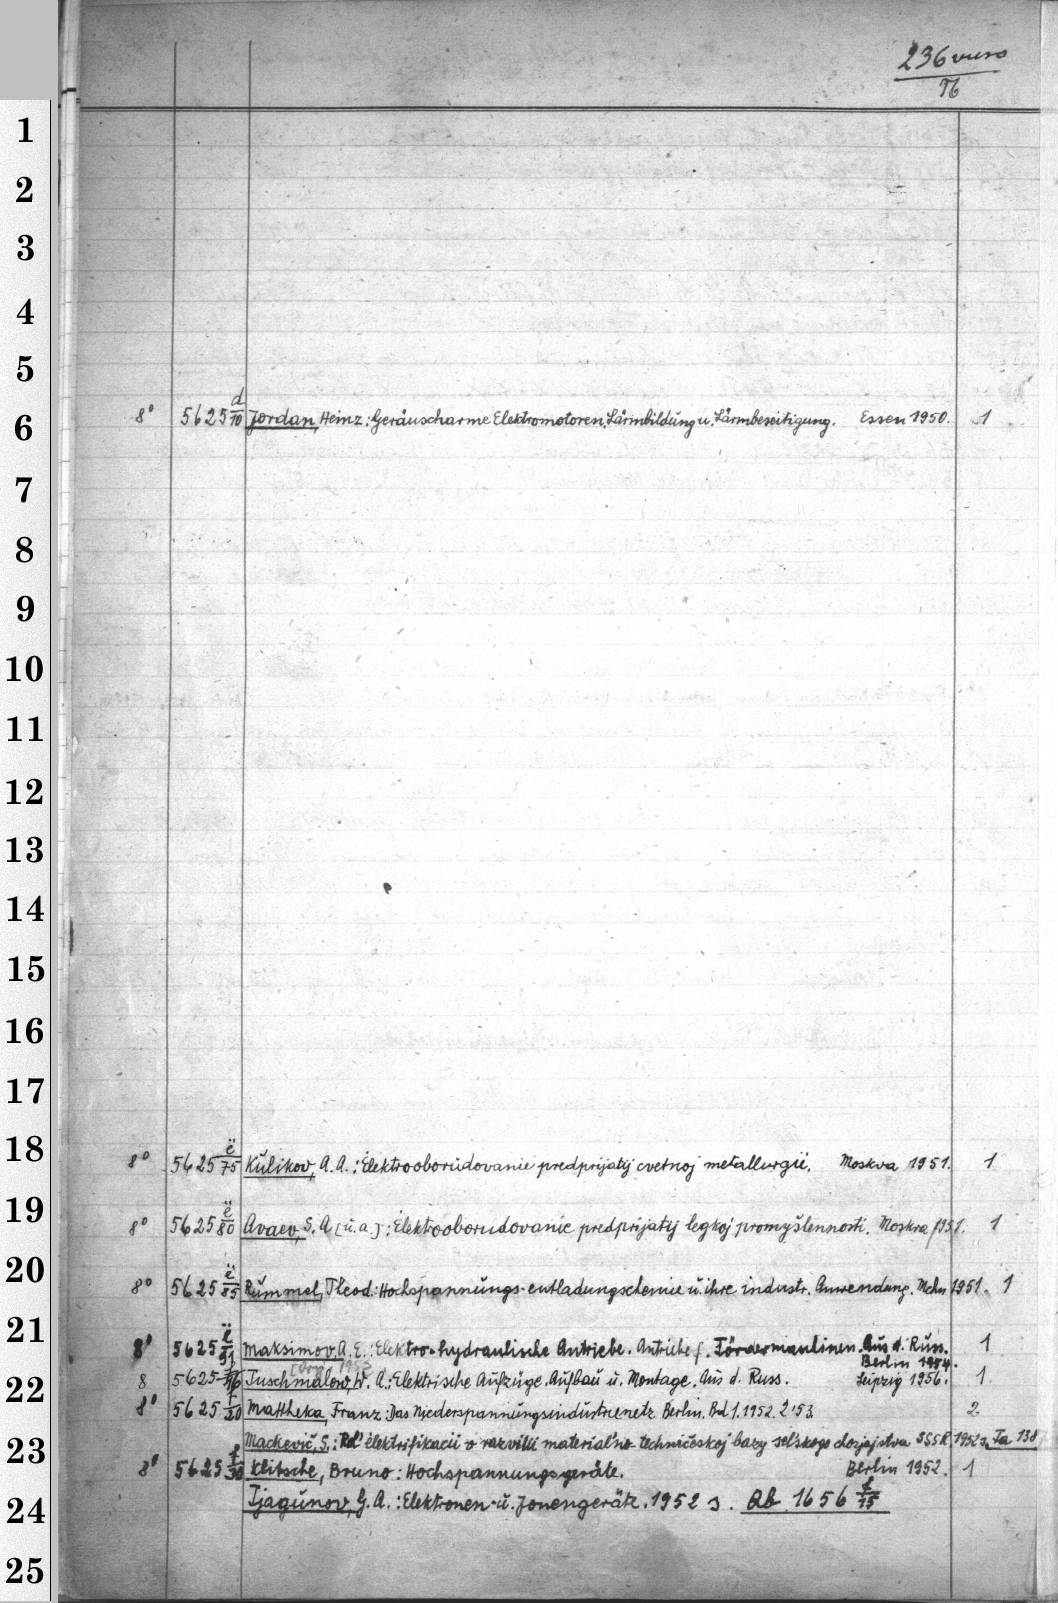 236
76
1
2
3
4
5
6
8° 5625 d/70 Jordan, Heinz: Geräuscharme Elektromotoren. Lärmbildung u. Lärmbeseitigung. Essen 1950. 1
7
8
9
10
11
12
13
14
15
16
17
18
8° 5625 ë/75 Kulikov, A. A.: Èlektrooborudovanie predprijatij cvetnoj metallurgii. Moskva 1951. 1
19
8° 5625 ë/80 Avaev, S. A [u. a.]: Èlektrooborudovanie predprijatij legkoj promyšlennosti. Moskva 1951. 1
20
8° 5625 ë/85 Rummel, Theod.: Hochspannungs-entladungschemie u. ihre industr. Anwendung. Mchn 1951. 1
21
8° 5625 ë/91 Maksimov, A. E.: Elektro-hydraulische Antriebe. Antriebe f. Fördermaschinen. Aus d. Russ. 1
Berlin 1954.
22
8 5625 /96 Tuschmalow, W. A.: Elektrische Aufzüge. Aufbau u. Montage. Aus d. Russ. Leipzig 1956. 1.
8° 5625 f/20 Mattheka, Franz: Das Niederspannungsindustrienetz. Berlin. Bd 1. 1952. 2 '53. 2
23
Mackevič, S.: Rol' èlektrifikacii v razvitii material'no-techničeskoj bazy sel'skogo chozjajstva SSSR. 1952 s. Fa 138
8° 5625 f/30 Klitsche, Bruno: Hochspannungsgeräte. Berlin 1952. 1
24
Tjagunov, G. A.: Elektronen- u. Jonengeräte. 1952 s. Qb 1656 f/75
25